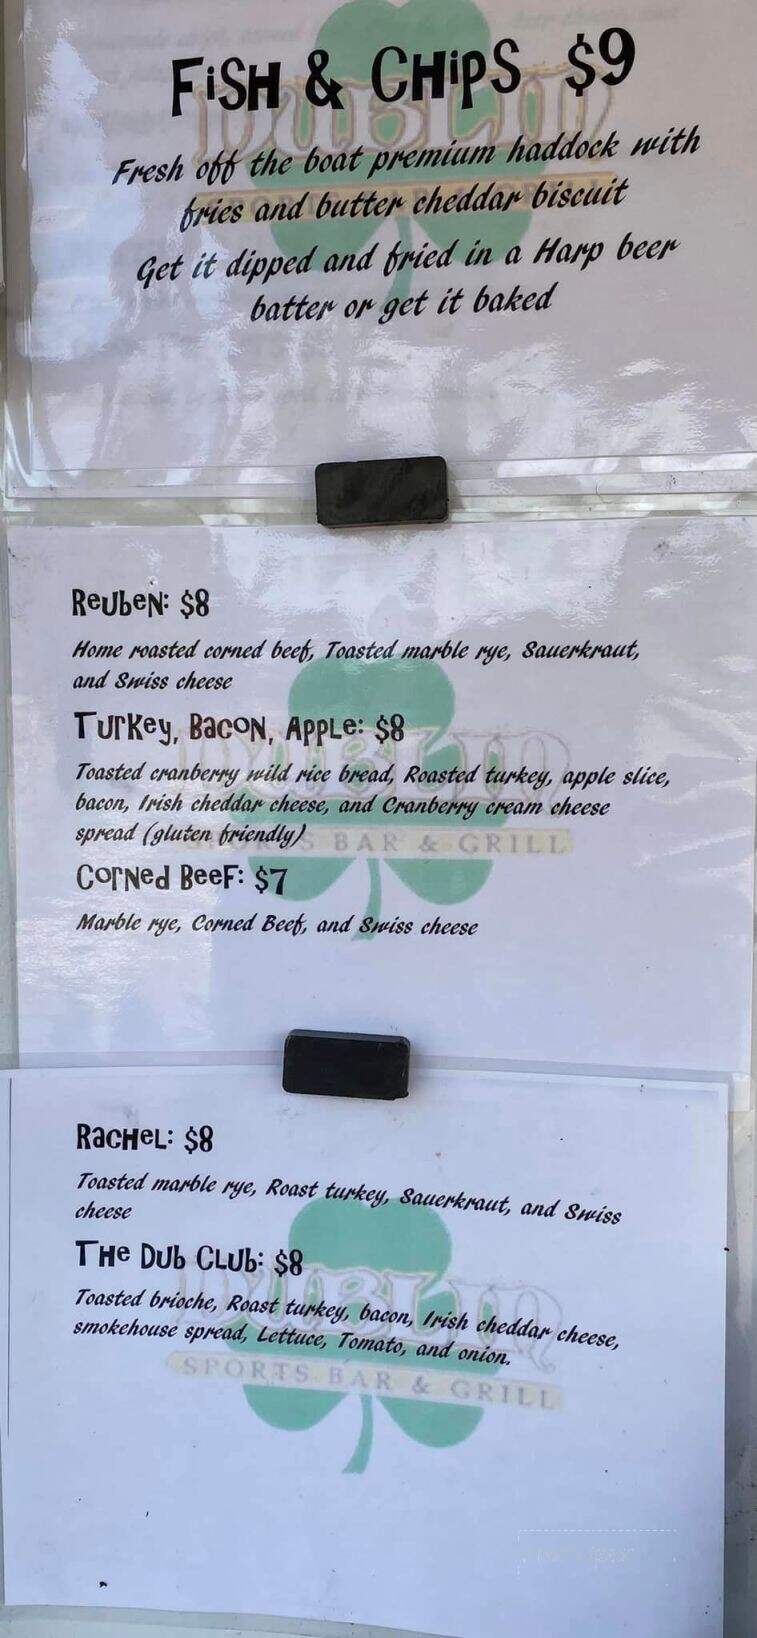 FiSH & CHiPS $9
DUBLIN
Fresh off the boat premium haddock with
fries and butter cheddar biscuit
Get it dipped and fried in a Harp beer
batter or get it baked
ReubeN: $8
Home roasted corned beef, Toasted marble rye, Sauerkraut,
and Swiss cheese
Turkey, Bacon, Apple: $8
DUBLIN
Toasted cranberry wild rice bread, Roasted turkey, apple slice,
bacon, Irish cheddar cheese, and Cranberry cream cheese
spread (gluten friendly)
SPORTS BAR & GRILL
Corned Beef: $7
Marble rye, Corned Beef, and Swiss cheese
RacHeL: $8
Toasted marble rye, Roast turkey, Sauerkraut, and Swiss
cheese
THe Dub CLub: $8
DUBLIN
Toasted brioche, Roast turkey, bacon, Irish cheddar cheese,
smokehouse spread, Lettuce, Tomato, and onion.
SPORTS BAR & GRILL